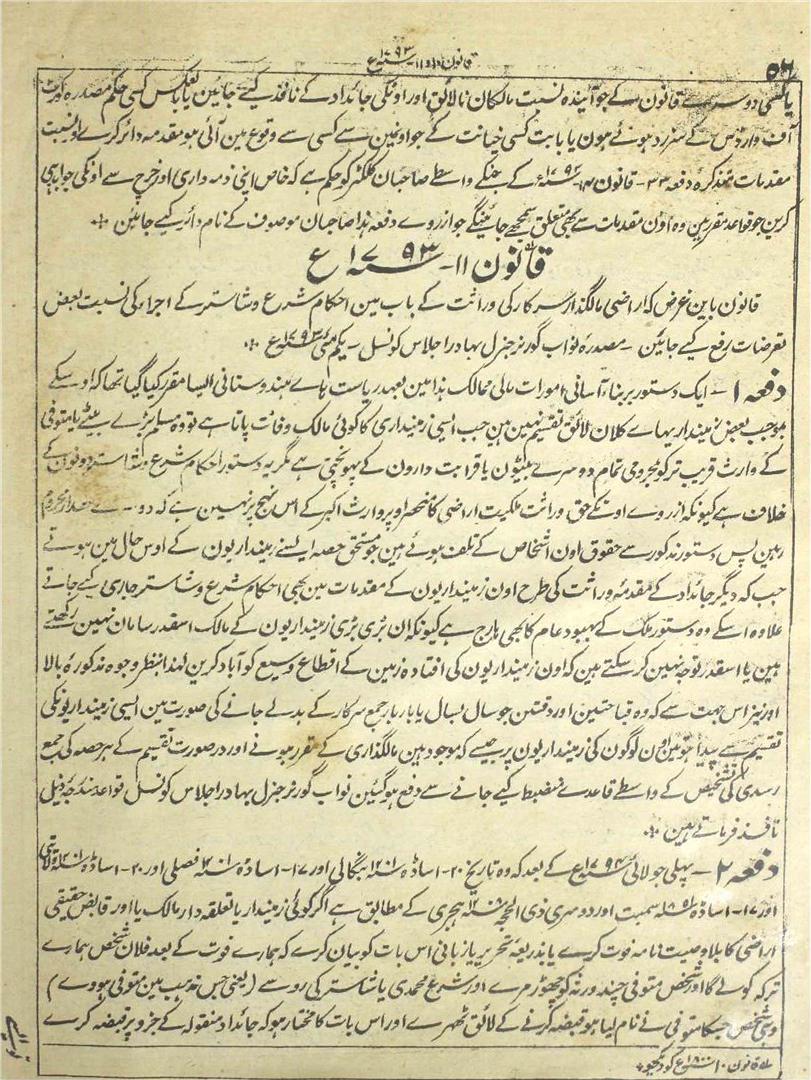 قانون ۱۰ و ۱۱ سنہ ۱۷۹۳ع
۵۶
یا کسی دوسرے قانون کے جو آیندہ نسبت مالکان نالائق اور اونکی جائداد کے نافذ کیے جائین یا بالعکس کسی حکم مصدرہ کورٹ
آف وارڈس کے سرزد ہوئے ہون یا بابت کسی خیانت کے جو اونمین سے کسی سے وقوع مین آئی ہو مقدمہ دائر کرے و نسبت
مقدمات متذکرہ دفعہ ۳۳- قانون سنہ ۱۷۹۳ع کے جنکے واسطے صاحبان کلکٹر کو حکم ہے کہ خاص اپنی ذمہ داری اور خرچ سے اونکی جوابدہی
کرین جو قواعد مقرر ہین وہ اون مقدمات سے بھی متعلق سمجھے جائینگے جو ازروے دفعہ ہذا صاحبان موصوف کے نام دائر کیے جائین
قانون ۱۱- سنہ ۱۷۹۳ ع
قانون باین غرض کہ اراضی مالگذار سرکار کی وراثت کے باب مین احکام شرع و شاستر کے اجراء کی نسبت بعض
تعرضات رفع کیے جائین – مصدرہ نواب گورنر جنرل بہادر اجلاس کونسل – یکم مئی سنہ ۱۷۹۳ع
دفعہ ۱ – ایک دستور بر بناء آسانی امورات مالی ممالک ہذا مین بعہد ریاست ہاے ہندوستانی ایسا مقرر کیا گیا تھا کہ اوسکے
بموجب بعض زمینداریہاے کلان لائق تقسیم نہین ہین جب ایسی زمینداری کا کوئی مالک وفات پاتا ہے تو وہ مسلم بڑے بیٹے یا متوفی
کے وارث قریب تر کو بمحرومی تمام دوسرے بیٹون یا قرابت دارون کے پہونچتی ہے مگر یہ دستور احکام شرع و شاستر دونون کے
خلاف ہے کیونکہ ازروے اونکے حق وراثت ملکیت اراضی کا منحصر اوپر وارث اکبر کے اس نہج پر نہین ہے کہ دو حقدار محروم
رہین پس دستور مذکور سے حقوق اون اشخاص کے تلف ہوئے ہین جو مستحق حصہ ایسے زمینداریون کے اوس حال مین ہوتے
جب کہ دیگر جائداد کے مقدمۂ وراثت کی طرح اون زمینداریون کے مقدمات مین بھی احکام شرع و شاستر جاری کیے جاتے
علاوہ اسکے وہ دستور ملک کے بہبود عام کا بھی ہارج ہے کیونکہ ان بڑی بڑی زمینداریون کے مالک اسقدر سامان نہین رکھتے
ہین یا اسقدر توجہ نہین کر سکتے ہین کہ اون زمینداریون کی افتادہ زمین کے اقطاع وسیع کو آباد کرین لہذا بنظر وجوہ مذکورۂ بالا
اور نیز اس جہت سے کہ وہ قباحتین اور دقتین جو سال بسال یا بار بار جمع سرکار کے بدلے جانے کی صورت مین ایسی زمینداریونکی
تقسیم سے پیدا ہوتین اون لوگون کی زمینداریون پر جیسے کہ موجود ہین مالگذاری کے مقرر ہونے اور در صورت تقسیم کے ہر حصہ کی جمع
رسدی کی تشخیص کے واسطے قاعدے منضبط کیے جانے سے دفع ہوگئین نواب گورنر جنرل بہادر اجلاس کونسل قواعد مندرجہ ذیل
نافذ فرماتے ہین
دفعہ ۲ – پہلی جولائی سنہ ۱۷۹۴ع کے بعد کہ وہ تاریخ ۲۰- اساڈہ سنہ ۱۲۰۱ بنگالی اور ۱۷- اساڈہ سنہ ۱۲۰۱ فصلی اور ۲۰- اساڈہ سنہ ۱۲۰۱ ولایتی
اور ۱۷- اساڈہ سنہ ۱۸۵۱ سمبت اور دوسری ذی الحجہ سنہ ۱۲۰۸ ہجری کے مطابق ہے اگر کوئی زمیندار یا تعلقہ دار مالک یا اور قابض حقیقی
اراضی کا بلا وصیت نامہ فوت کرے یا بذریعہ تحریر یا زبانی اس بات کو بیان کرے کہ ہمارے فوت کے بعد فلان شخص ہمارے
ترکہ کو لے گا اور شخص متوفی چند ورثہ کو چھوڑ مرے اور شرع محمدی یا شاستر کی رو سے (یعنی جس مذہب مین متوفی ہووے)
وہ شخص جسکا متوفی نے نام لیا ہو قبضہ کرنے کے لائق ٹھہرے اور اس بات کا مختار ہو کہ جائداد منقولہ کے جزو پر قبضہ کرے